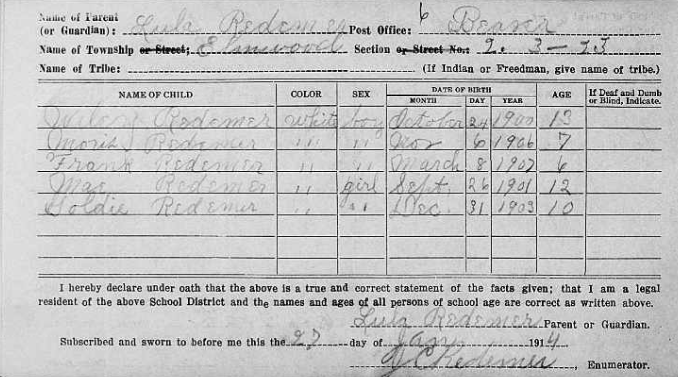 Name of Parent
(or Guardian): Lula Redemer Post Office: Beaver
Name of Township or Street; Elmwood Section or Street No.: 2. 3-23
Name of Tribe: (If Indian or Freedman, give name of tribe.)
NAME OF CHILD COLOR SEX DATE OF BIRTH MONTH DAY YEAR AGE If Deaf and Dumb or Blind, Indicate.
Redemer white boy October 24 1900 13
Moris Redemer " " Nov 6 1906 7
Frank Redemer " " March 8 1907 6
Mae Redemer " girl Sept. 26 1901 12
Goldie Redemer " " Dec. 31 1903 10
I hereby declare under oath that the above is a true and correct statement of the facts given; that I am a legal
resident of the above School District and the names and ages of all persons of school age are correct as written above.
Lula Redemer Parent or Guardian.
Subscribed and sworn to before me this the 27 day of Jan 1914
J C Redemer, Enumerator.